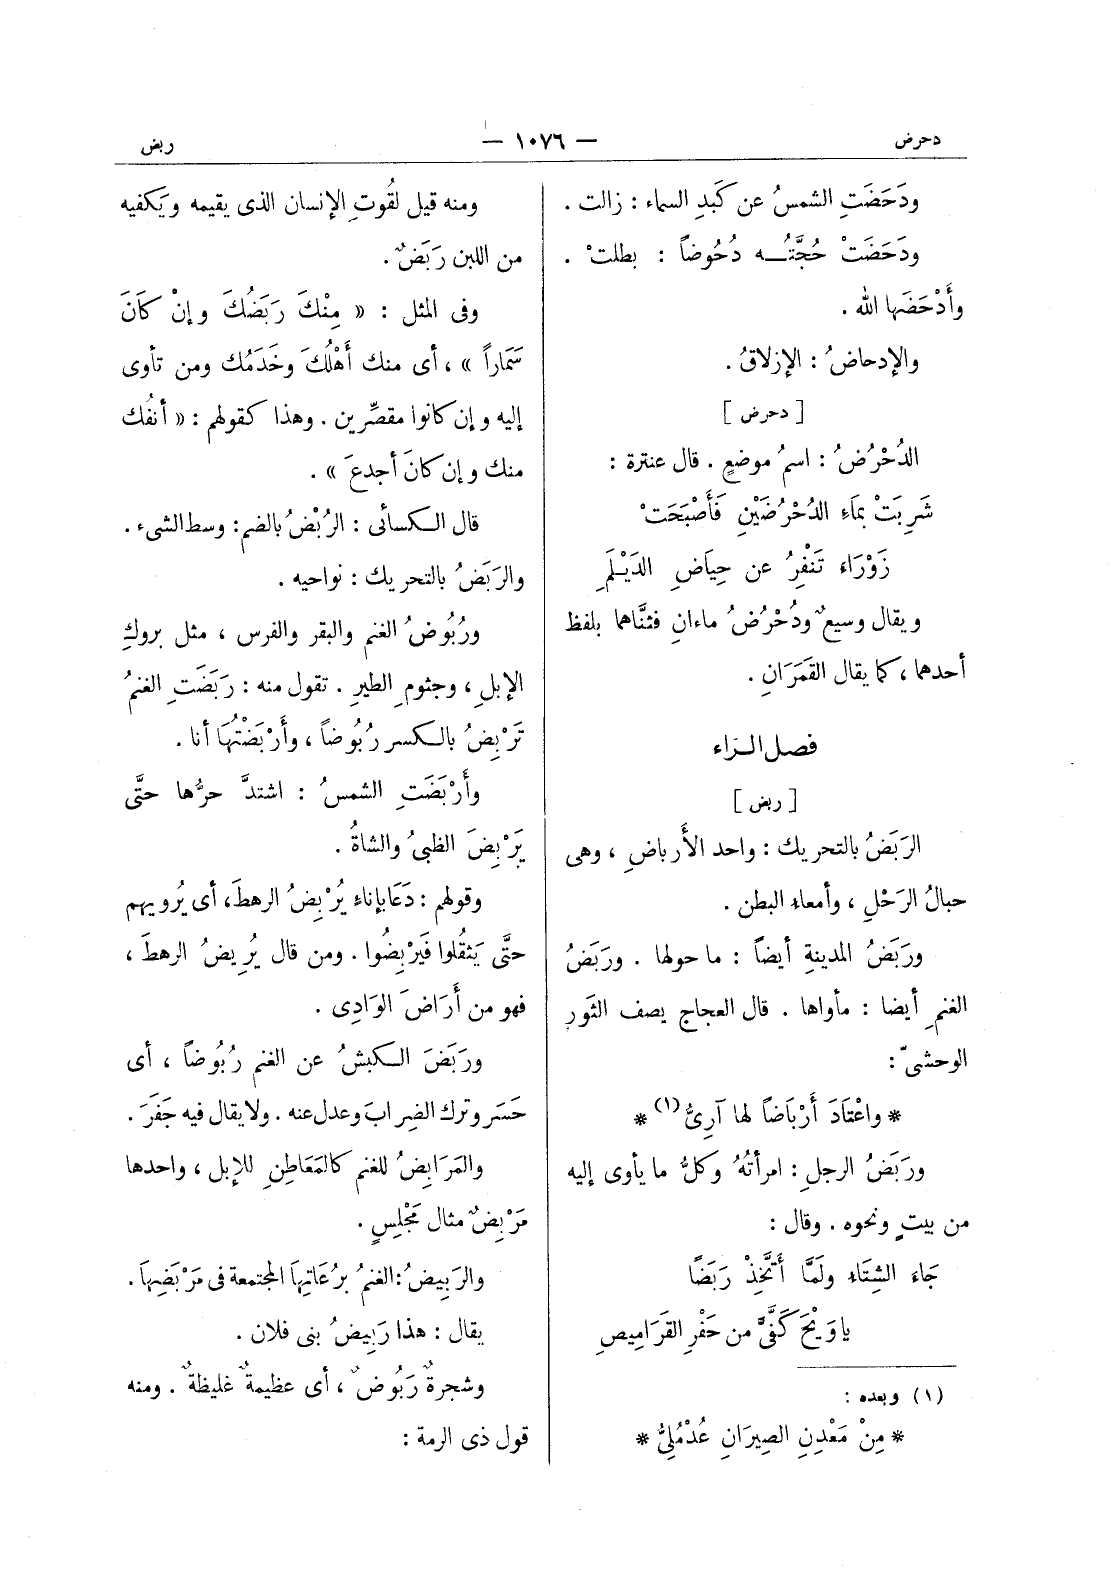 دحرض
— ١٠٧٦ —
ربض
ودَحَضَتِ الشمسُ عن كَبَدِ السماء : زالت .
ودَحَضَتْ حُجَّتُـــه دُحُوضاً : بطلتْ .
وأَدْحَضَها الله .
والإدحاضُ : الإزلاقُ .
[ دحرض ]
الدُحْرُضُ : اسمُ موضعٍ . قال عنترة :
شَرِبَتْ بمَاءِ الدُحْرُضَيْنِ فَأَصْبَحَتْ
زَوْرَاء تَنْفِرُ عن حِيَاضِ الدَيْلَمِ
ويقال وسيعٌ ودُحْرُضُ ماءانِ فثنَّاهما بلفظ
أحدهما ، كما يقال القَمَرَانِ .
فصل الراء
[ ربض ]
الرَبَضُ بالتحريك : واحد الأَرباضِ ، وهى
حبالُ الرَحْلِ ، وأمعاء البطن .
ورَبَضُ المدينةِ أيضاً : ما حولها . ورَبَضُ
الغنمِ أيضا : مأواها . قال العجاج يصف الثَور
الوحشىّ :
* واعْتَادَ أَرْبَاضاً لها آرِىُّ (١) *
ورَبَضُ الرجلِ : امرأتُهُ وكلُّ ما يأوى إليه
من بيتٍ ونحوه . وقال :
جَاءَ الشِتَاءُ ولَمَّا أَتَّخِذْ رَبَضًا
ياوَيْحَ كَفَّىَّ من حَفْرِ القَرَامِيصِ
(١) وبعده :
* مِنْ مَعْدِنِ الصِيرَانِ عُدْمُلِىُّ *
ومنه قيل لقُوتِ الإنسان الذى يقيمه ويَكفيه
من اللبن رَبَضٌ .
وفى المثل : « مِنْكَ رَبَضُكَ وإنْ كَانَ
سَمَاراً » ، أى منك أَهْلُكَ وخَدَمُك ومن تأوى
إليه وإن كانوا مقصِّرين . وهذا كقولهم : « أنفُك
منك وإن كانَ أجدعَ » .
قال الكسائى : الرُبْضُ بالضم : وسط الشىء .
والرَبَضُ بالتحريك : نواحيه .
ورُبُوضُ الغنم والبقر والفرس ، مثل بروكِ
الإبلِ ، وجثومِ الطيرِ . تقول منه : رَبَضَتِ الغنمُ
تَرْبِضُ بالكسر رُبُوضاً ، وأَرْبَضْتُهَا أنا .
وأَرْبَضَتِ الشمسُ : اشتدَّ حرُّها حتَّى
يَرْبِضَ الظبىُ والشاةُ .
وقولهم : دَعَا بإناءٍ يُرْبِضُ الرهطَ، أى يُرويهم
حتَّى يَثقُلوا فيَرْبِضُوا . ومن قال يُرِيضُ الرهطَ ،
فهو من أَرَاضَ الوَادِى .
ورَبَضَ الكبشُ عن الغنم رُبُوضاً ، أى
حَسَر وترك الضِرابَ وعدل عنه . ولا يقال فيه جَفَرَ .
والمَرَابِضُ للغنم كالمَعَاطِنِ للإبل ، واحدها
مَرْبِضٌ مثال مَجْلِسٍ .
والرَبِيضُ : الغنمُ برُعَاتِهاَ المجتمعة فى مَرْبَضِهاَ .
يقال : هذا رَبِيضُ بنى فلان .
وشجرةٌ رَبُوضٌ ، أى عظيمةٌ غليظةٌ . ومنه
قول ذى الرمة :